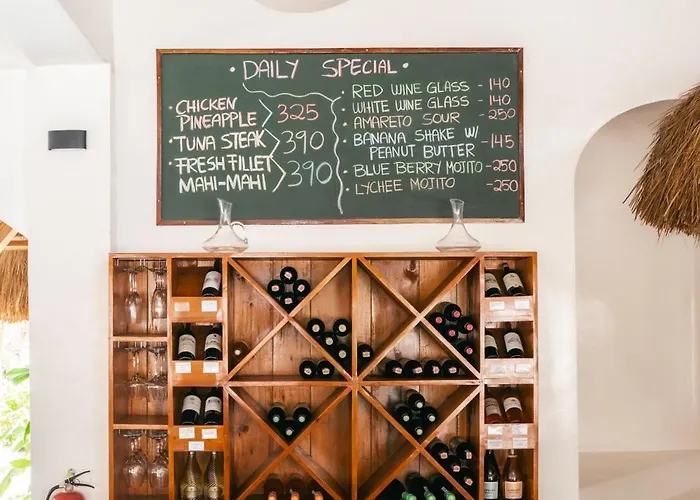 • DAILY SPECIAL •
• CHICKEN PINEAPPLE 325
• TUNA STEAK 390
• FRESH FILLET MAHI-MAHI 390
• RED WINE GLASS - 140
• WHITE WINE GLASS - 140
• AMARETO SOUR - 250
• BANANA SHAKE W/ PEANUT BUTTER - 145
• BLUE BERRY MOJITO - 250
• LYCHEE MOJITO - 250